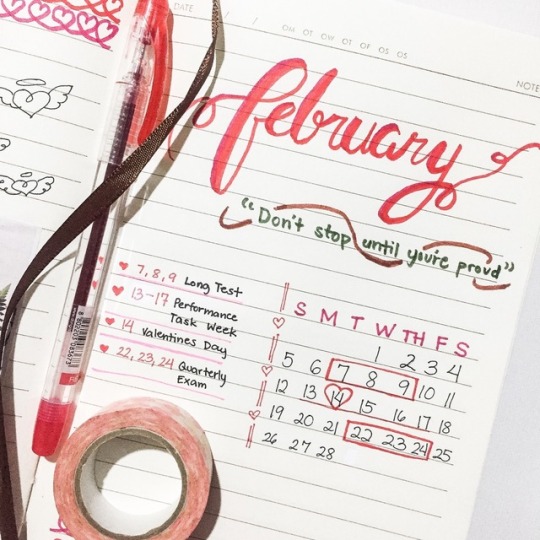 DATE / /
NOTE
february
"Don't stop until you're proud"
7, 8, 9 Long Test
13-17 Performance
Task Week
14 Valentines Day
22, 23, 24 Quarterly
Exam
S M T W TH F S
1 2 3 4
5 6 7 8 9 10 11
12 13 14 15 16 17 18
19 20 21 22 23 24 25
26 27 28